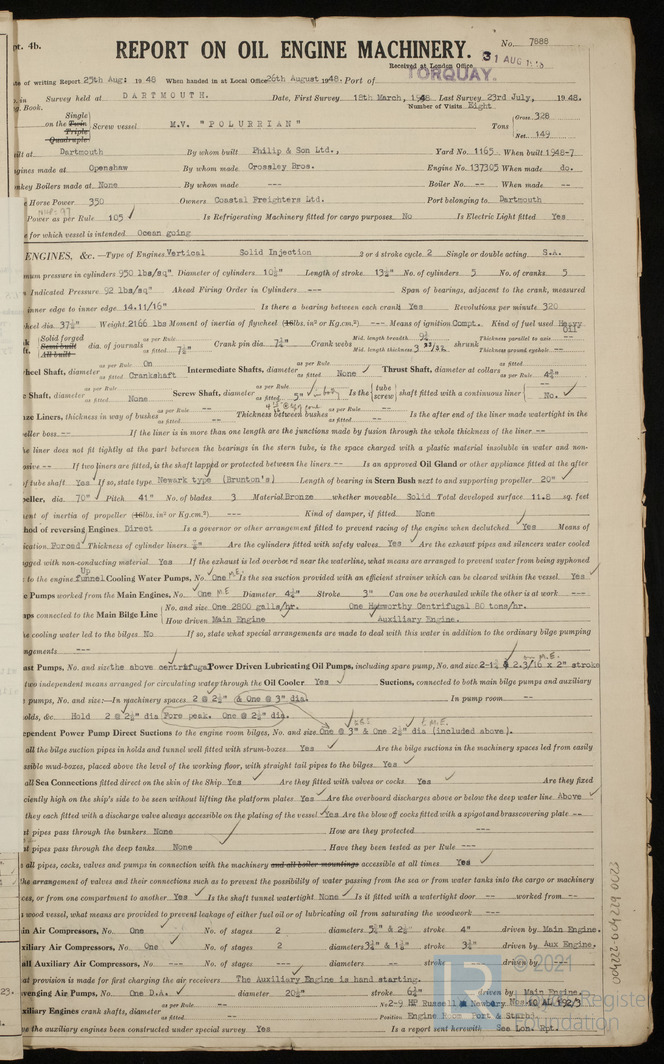 pt. 4b.
REPORT ON OIL ENGINE MACHINERY.
No. 7888
Received at London Office 31 AUG
te of writing Report 25th Aug: 1948 When handed in at Local Office 26th August 1948. Port of TORQUAY.
o. in Survey held at DARTMOUTH. Date, First Survey 18th March, 1948 Last Survey 23rd July, 1948.
g. Book. Number of Visits Eight
on the Single Twin Triple Quadruple Screw vessel M.V. "POLURRIAN" Tons Gross 328 Net 149
uilt at Dartmouth By whom built Philip & Son Ltd., Yard No. 1165 When built 1948-7
gines made at Openshaw By whom made Crossley Bros. Engine No. 137305 When made do.
nkey Boilers made at None By whom made --- Boiler No. -- When made --
e Horse Power 350 Owners Coastal Freighters Ltd. Port belonging to Dartmouth
Power as per Rule 105 Is Refrigerating Machinery fitted for cargo purposes No Is Electric Light fitted Yes
e for which vessel is intended Ocean going
ENGINES, &c.—Type of Engines Vertical Solid Injection 2 or 4 stroke cycle 2 Single or double acting S.A.
mum pressure in cylinders 950 lbs/sq" Diameter of cylinders 10½" Length of stroke 13½" No. of cylinders 5 No. of cranks 5
n Indicated Pressure 92 lbs/sq" Ahead Firing Order in Cylinders --- Span of bearings, adjacent to the crank, measured
inner edge to inner edge 14.11/16" Is there a bearing between each crank Yes Revolutions per minute 320
heel dia. 37½" Weight 2166 lbs Moment of inertia of flywheel (16 lbs. in² or Kg.cm.²) --- Means of ignition Compt. Kind of fuel used Heavy oil
Solid forged Semi built All built dia. of journals as per Rule as fitted 7½" Crank pin dia. 7½" Crank webs Mid. length breadth 9¼ Mid. length thickness 3 23/32 shrunk Thickness parallel to axis -- Thickness around eyehole --
heel Shaft, diameter as per Rule On as fitted Crankshaft Intermediate Shafts, diameter as per Rule as fitted None Thrust Shaft, diameter at collars as per Rule as fitted 4¾"
e Shaft, diameter as per Rule as fitted None Screw Shaft, diameter as per Rule as fitted 5" Is the {tube screw} shaft fitted with a continuous liner No.
nze Liners, thickness in way of bushes as per Rule as fitted -- Thickness between bushes as per Rule as fitted -- Is the after end of the liner made watertight in the
eller boss -- If the liner is in more than one length are the junctions made by fusion through the whole thickness of the liner --
he liner does not fit tightly at the part between the bearings in the stern tube, is the space charged with a plastic material insoluble in water and non-
osive -- If two liners are fitted, is the shaft lapped or protected between the liners -- Is an approved Oil Gland or other appliance fitted at the after
of tube shaft Yes If so, state type Newark type (Brunton's) Length of bearing in Stern Bush next to and supporting propeller 20"
peller, dia. 70" Pitch 41" No. of blades 3 Material Bronze whether moveable Solid Total developed surface 11.8 sq. feet
ent of inertia of propeller (16 lbs. in² or Kg.cm.²) --- Kind of damper, if fitted None
hod of reversing Engines Direct Is a governor or other arrangement fitted to prevent racing of the engine when declutched Yes Means of
ication Forced Thickness of cylinder liners ⅞" Are the cylinders fitted with safety valves Yes Are the exhaust pipes and silencers water cooled
gged with non-conducting material Yes If the exhaust is led overboard near the waterline, what means are arranged to prevent water from being syphoned
to the engine Up funnel Cooling Water Pumps, No. One M.E. Is the sea suction provided with an efficient strainer which can be cleared within the vessel Yes
e Pumps worked from the Main Engines, No. One M.E. Diameter 4½" Stroke 3" Can one be overhauled while the other is at work ---
ps connected to the Main Bilge Line {No. and size One 2800 galls/hr. One Hamworthy Centrifugal 80 tons/hr.
How driven Main Engine Auxiliary Engine.
he cooling water led to the bilges No If so, state what special arrangements are made to deal with this water in addition to the ordinary bilge pumping
ngements ---
ast Pumps, No. and size the above centrifugal Power Driven Lubricating Oil Pumps, including spare pump, No. and size 2-1¼ & 2.3/16 x 2" stroke
two independent means arranged for circulating water through the Oil Cooler Yes Suctions, connected to both main bilge pumps and auxiliary
e pumps, No. and size:—In machinery spaces 2 @ 2½" & One @ 3" dia. In pump room --
olds, &c. Hold 2 @ 2½" dia Fore peak. One @ 2½" dia.
ependent Power Pump Direct Suctions to the engine room bilges, No. and size. One @ 3" & One 2½" dia (included above).
all the bilge suction pipes in holds and tunnel well fitted with strum-boxes Yes Are the bilge suctions in the machinery spaces led from easily
ssible mud-boxes, placed above the level of the working floor, with straight tail pipes to the bilges Yes
all Sea Connections fitted direct on the skin of the Ship Yes Are they fitted with valves or cocks Yes Are they fixed
ciently high on the ship's side to be seen without lifting the platform plates Yes Are the overboard discharges above or below the deep water line Above
they each fitted with a discharge valve always accessible on the plating of the vessel Yes Are the blow off cocks fitted with a spigot and brass covering plate --
t pipes pass through the bunkers None How are they protected ---
t pipes pass through the deep tanks None Have they been tested as per Rule ---
all pipes, cocks, valves and pumps in connection with the machinery and all boiler mountings accessible at all times Yes
he arrangement of valves and their connections such as to prevent the possibility of water passing from the sea or from water tanks into the cargo or machinery
ces, or from one compartment to another Yes Is the shaft tunnel watertight None Is it fitted with a watertight door -- worked from --
a wood vessel, what means are provided to prevent leakage of either fuel oil or of lubricating oil from saturating the woodwork ---
ain Air Compressors, No. One No. of stages 2 diameters 5¾" & 2½" stroke 4" driven by Main Engine.
xiliary Air Compressors, No. One No. of stages 2 diameters 3¾" & 1½" stroke 3¾" driven by Aux Engine.
all Auxiliary Air Compressors, No. --- No. of stages --- diameters -- stroke -- driven by. --
at provision is made for first charging the air receivers The Auxiliary Engine is hand starting.
venging Air Pumps, No. One D.A. diameter 20½" stroke 6¾" driven by Main Engine.
xiliary Engines crank shafts, diameter as per Rule -- as fitted -- No. 2-9 HP Russell Newbery Position Engine Room Port & Starb
ve the auxiliary engines been constructed under special survey Yes Is a report sent herewith See Lon. Rpt.
23.
004222-004229-0023
© 2021
LR
Register
Foundation